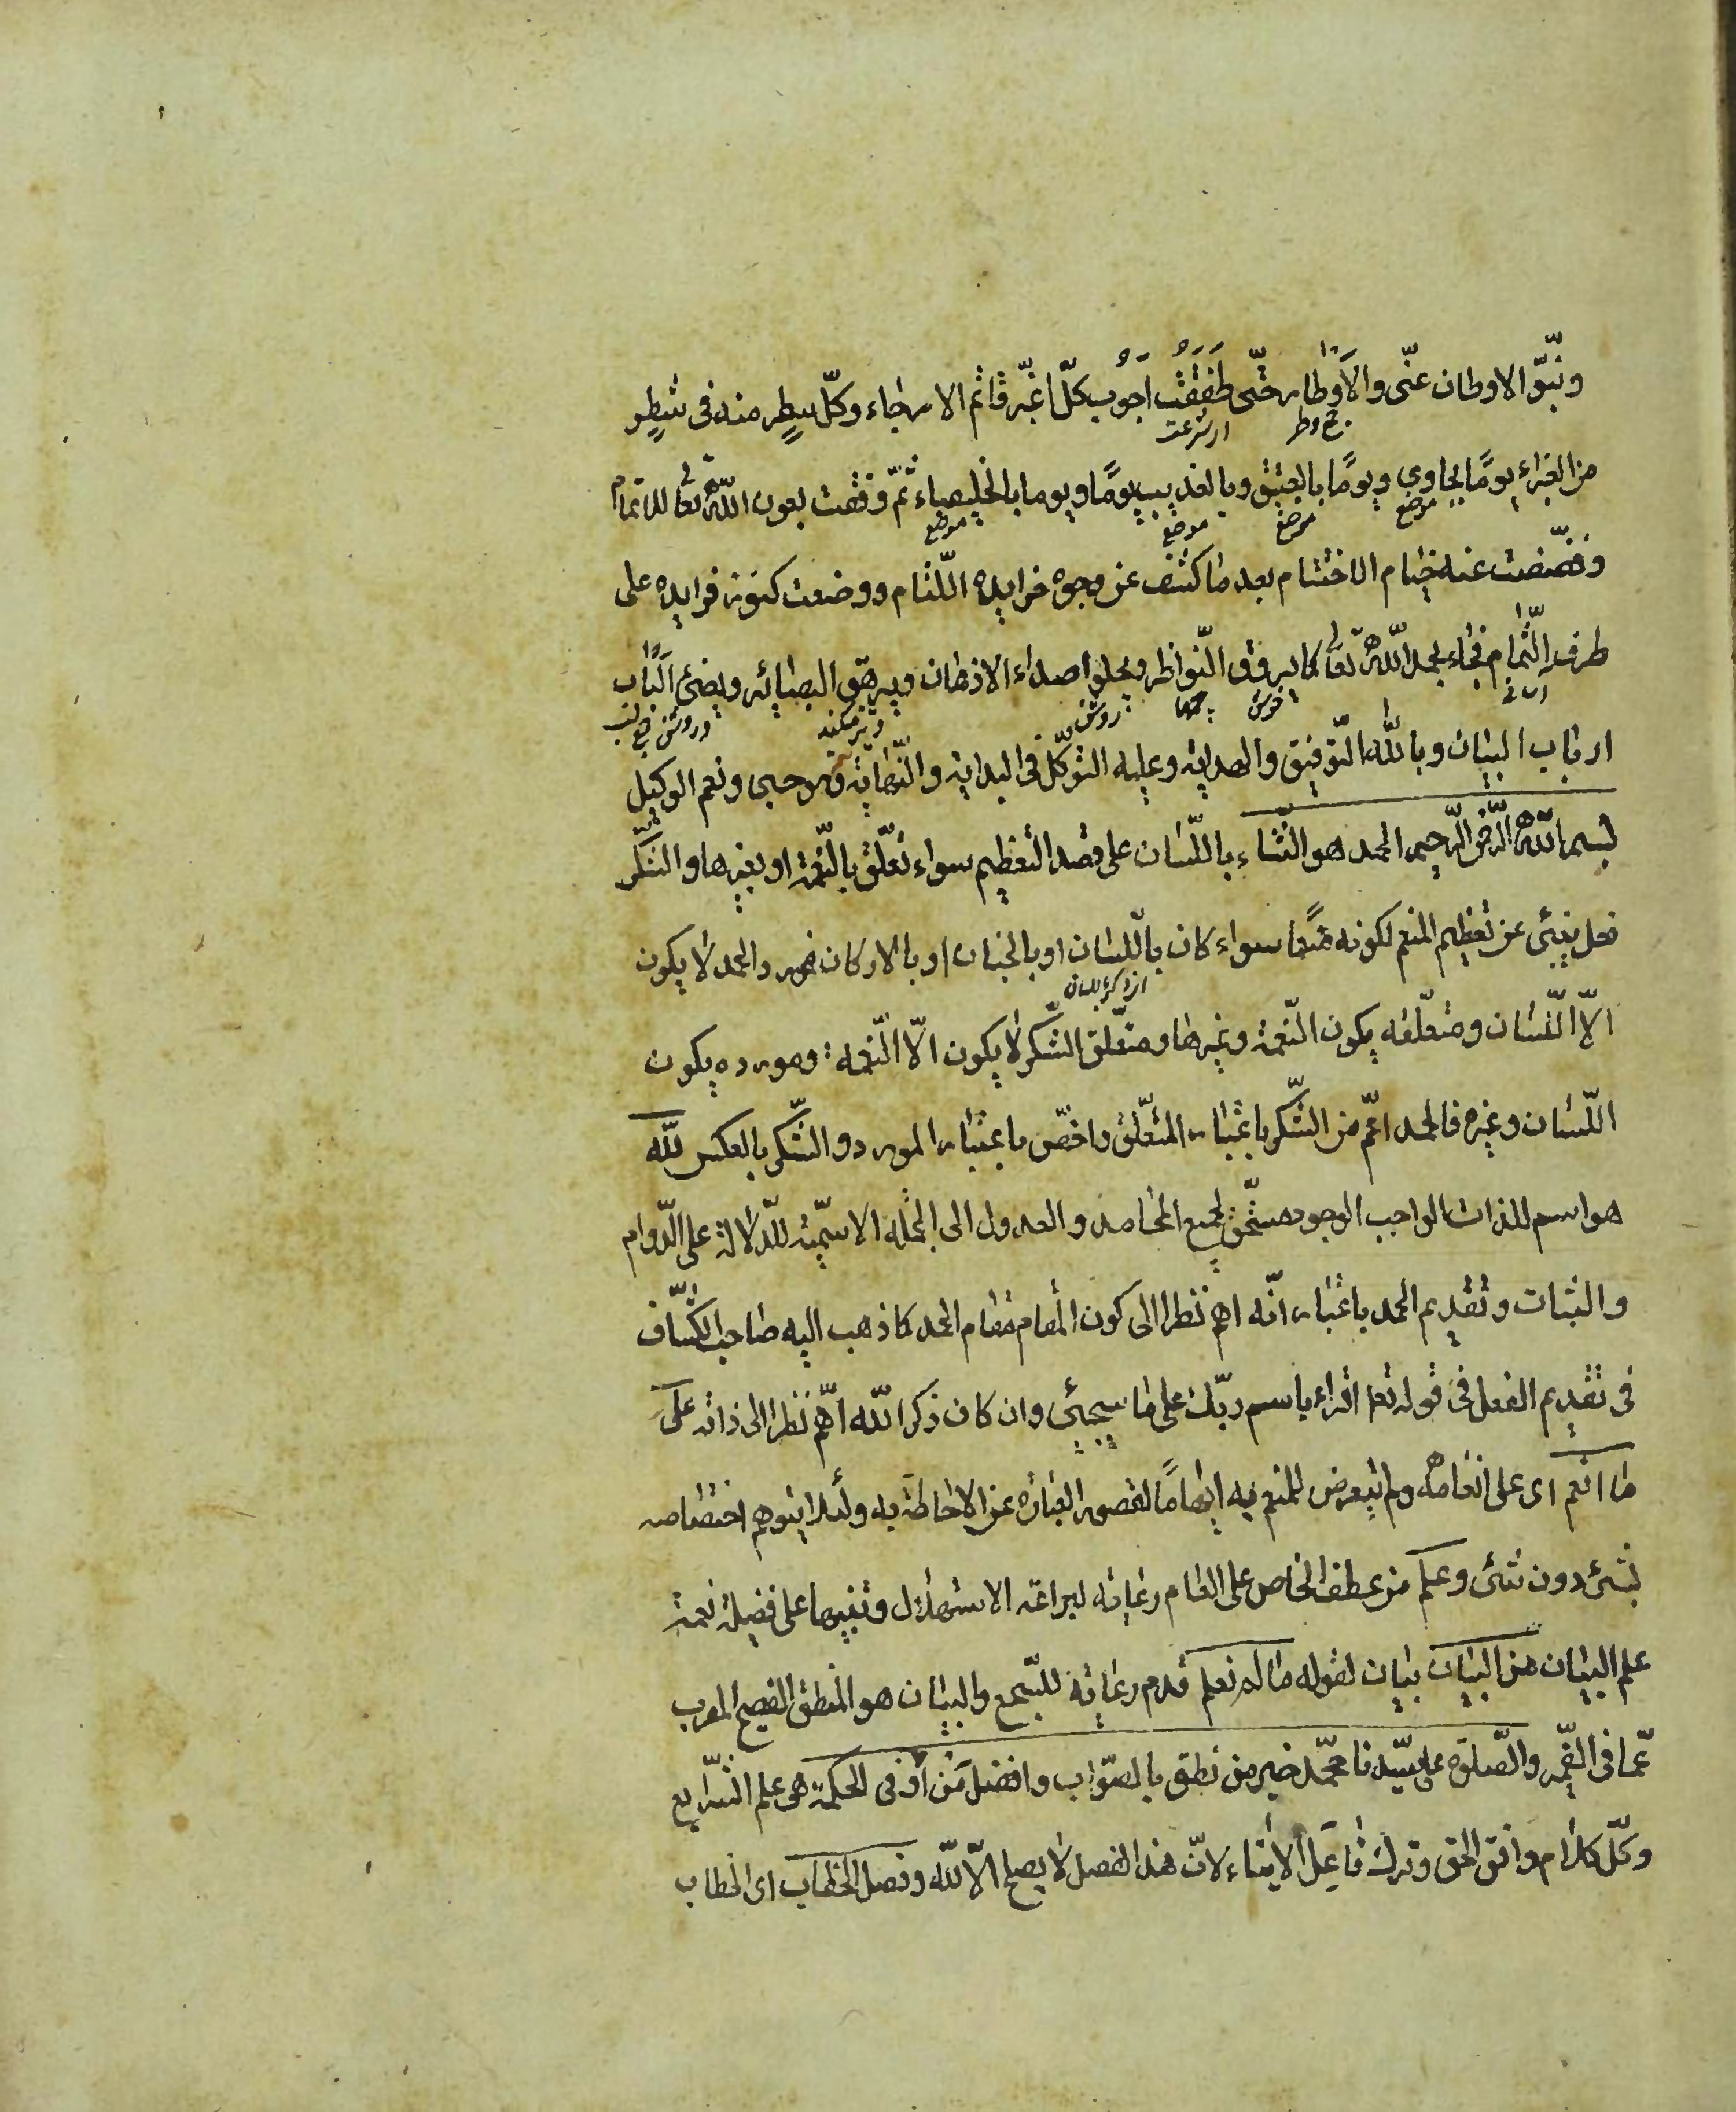 ونبّو الاوطان عنّى والاَوطار حتّى طَفِقْتُ اَجُوبُ كلّ اغبّر قاتم الارجاء وكلّ سطر منه فى شطر
ج وطر اى شرعت
من الغبراء يومًا بحاوى ويومًا بالعقيق وبالعذيب يومًا ويوما بالخليصاء ثمّ وفّقت بعون اللّه تعا للاتمام
موضع موضع موضع موضع
وفضضت عنه ختام الاختتام بعد ما كشف عن وجوه خرايده اللّثام ووضعت كنوز فرايده على
طرف الثّمام فجاء بحمد اللّه تعا كما يروق النّواظر ويجلو اصداء الاذهان ويرهق البصائر ويضئ البَاب
خوش روشن تيز ميكند وروشن جمع لب
ارباب البيان وباللّه التّوفيق والهداية وعليه التّوكّل فى البداية والنّهاية وهو حسبى ونعم الوكيل
بسم اللّه الرّحمن الرّحيم الحمد هو الثّناء باللّسان على قصد التعظيم سواء تعلّق بالنّعمة او بغيرها والشّكر
فعل ينبئ عن تعظيم المنعم لكونه منعما سواء كان باللّسان او بالجنان او بالاركان فمورد الحمد لا يكون
الّا اللّسان ومتعلّقه يكون النّعمة وغيرها ومتعلّق الشّكر لا يكون الّا النّعمه ومورده يكون
اللّسان وغيره فالحمد اعمّ من الشّكر باعتبار المتعلّق واخصّ باعتبار المورد والشّكر بالعكس للّه
هو اسم للذات الواجب الوجود مستحقّ لجميع المحامد والعدول الى الجملة الاسميّة للدّلالة على الدّوام
والثبات وتقديم الحمد باعتبار انّه اهم نظرا الى كون المقام مقام الحمد كما ذهب اليه صاحب الكشّاف
فى تقديم الفعل فى قوله تعا اقراء باسم ربّك على ما سيجيئ وان كان ذكر اللّه اهمّ نظرا الى ذاته على
ما انعم اى على انعامه ولم يتعرض للمنعم به ايهامًا لقصور العبارة عن الاحاطة به ولئلا يتوهم اختصاصه
بشئ دون شئ وعلم من عطف الخاص على العام رعاية لبراعة الاستهلال وتنبيها على فضيلة نعمة
علم البيان من البيان بيان لقوله ما لم نعلم قدم رعاية للسّجع والبيان هو المنطق الفصيح المعرب
عمّا فى الضّمير والصّلوة على سيّدنا محمّد خير من نطق بالصّواب وافضل مَنْ اُوتى الحكمة هى علم الشّرايع
وكلّ كلام وافق الحق وترك فَاعِل الايتاء لانّ هذا الفصل لا يصلح الّا للّه وفصل الخطاب اى الخطاب